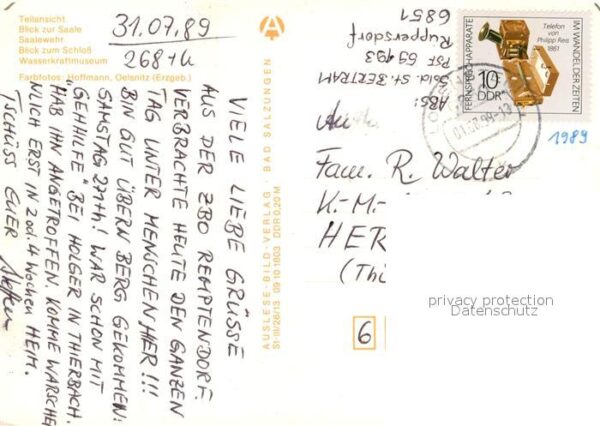 Teilansicht
Blick zur Saale
Saalewehr
Blick zum Schloß
Wasserkraftmuseum
Farbfotos: Hoffmann, Oelsnitz (Erzgeb.)
31.07.89
268+U
VIELE LIEBE GRÜSSE
AUS DER ZBO REMPTENDORF.
VERBRACHTE HEUTE DEN GANZEN
TAG UNTER MENSCHEN HIER!!!
BIN GUT ÜBERN BERG GEKOMMEN:
SAMSTAG 2774h! WAR SCHON MIT
"GEHHILFE" BEI HOLGER IN THIERBACH.
HAB IHN ANGETROFFEN. KOMME WARSCHEI
NLICH ERST IN 2 od. 4 WOCHEN HEIM.
TSCHÜSS EUER
AUSLESE-BILD-VERLAG · BAD SALZUNGEN
St-III/26/13 09 10 1803 DDR 0,20 M
ABS:
Sold. St. BERTRAM
PSF 59 193
Ruppersdorf
6851
FERNSPRECHAPPARATE
IM WANDEL DER ZEITEN
Telefon
von
Philipp Reis
1861
10
DDR
1989
Fam. R. Walter
K.-M.-
HER
(Thü
6
privacy protection
Datenschutz